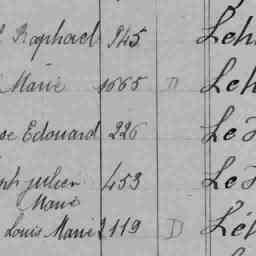 Raphael 945 Leh
Marie 1065 D Leh
se Edouard 226 Le
ph julien 453 Le
Marie
Louis Marie 2119 D Lé